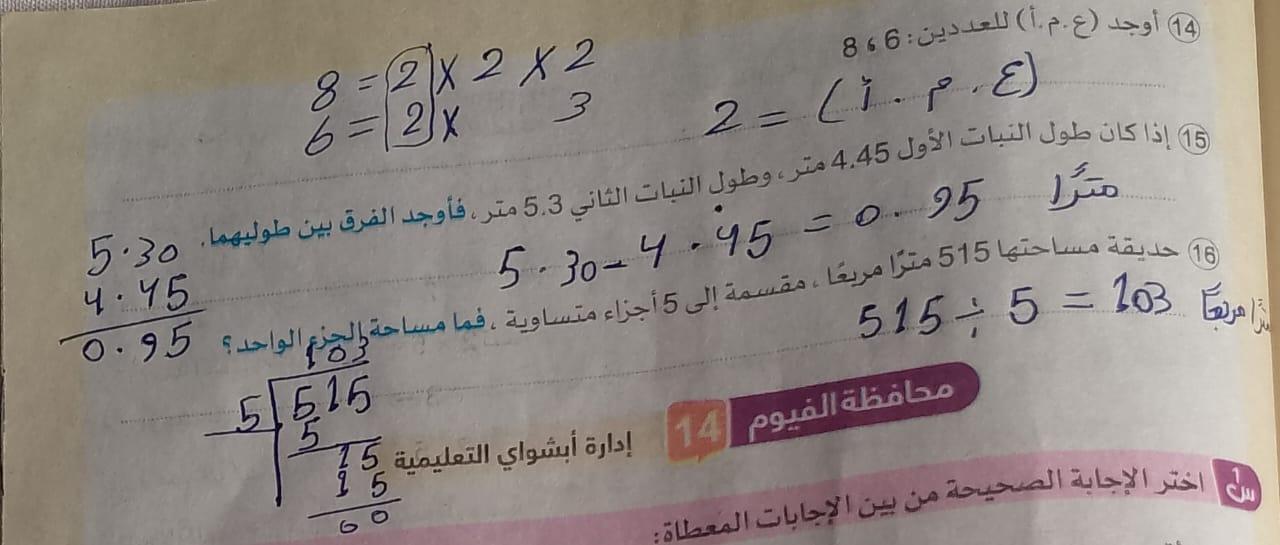 14 أوجد (ع.م.أ) للعددين: 6 ، 8
8 = 2 × 2 × 2
6 = 2 × 3
(ع.م.أ) = 2
15 إذا كان طول النبات الأول 4.45 متر، وطول النبات الثاني 5.3 متر، فأوجد الفرق بين طوليهما.
5.30 - 4.45 = 0.95 مترًا
5.30
4.45
0.95
16 حديقة مساحتها 515 مترًا مربعًا، مقسمة إلى 5 أجزاء متساوية، فما مساحة الجزء الواحد؟
515 ÷ 5 = 103 مترًا مربعًا
103
5 515
5
15
15
00
14 محافظة الفيوم
إدارة أبشواي التعليمية
س1 اختر الإجابة الصحيحة من بين الإجابات المعطاة: